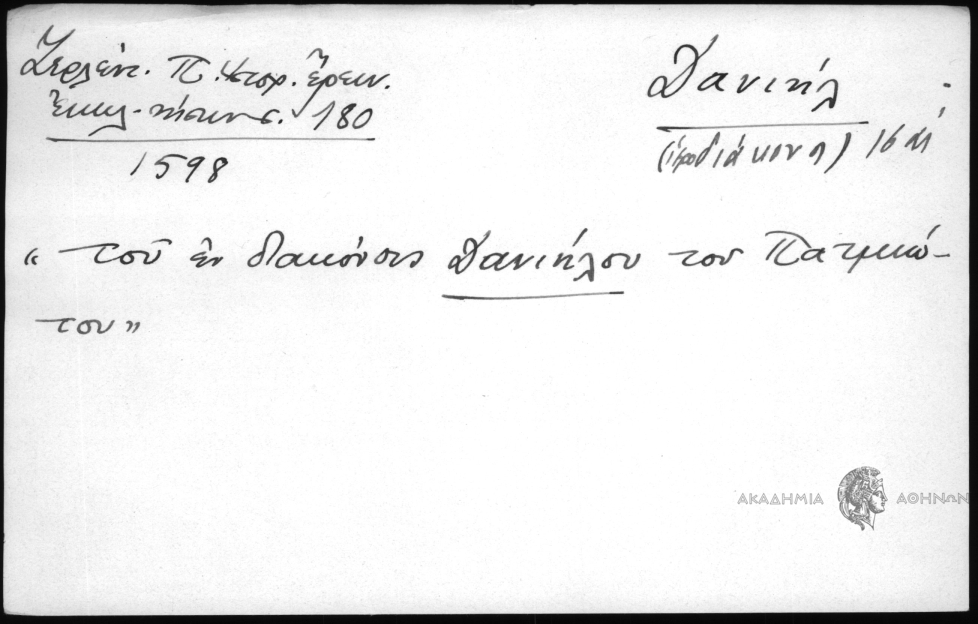 Ζερλέντ. Π. Ἱστορ. ἔρευν.
Ἐκκλ. νήσων 180
1598
Δανιήλ
(ἱεροδιάκονος) 16 αἰ
“ τοῦ ἐν διακόνοις Δανιήλου του Πατμιώ-
του ”
ΑΚΑΔΗΜΙΑ ΑΘΗΝΩΝ